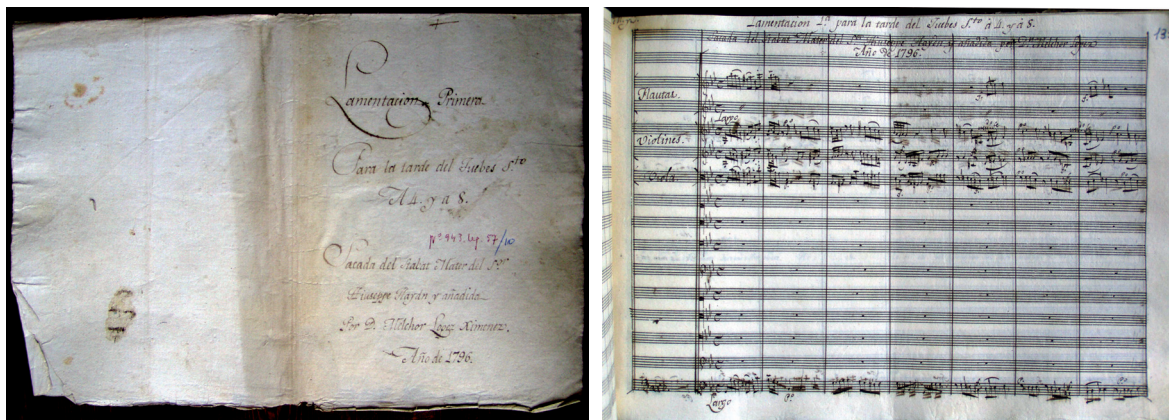 Lamentacion Primera
Para la tarde del Juebes S.to
A 4. y a 8.
nº 943. Leg. 57/10
Sacada del Stabat Mater del S.or
Giuseppe Haydn y añadida
Por D. Melchor Lopez Ximenez.
Año de 1796.
Lamentacion 1.a para la tarde del Juebes S.to à 4. y à 8.
Sacada del Stabat Mater del S.r Giuseppe Haydn y añadida por D. Melchor Lopez
Año De 1796.
13
Flautas.
Largo
Violines.
Viola
Largo